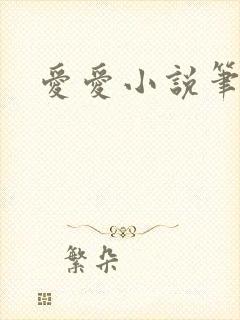 愛愛小說筆
繁朵